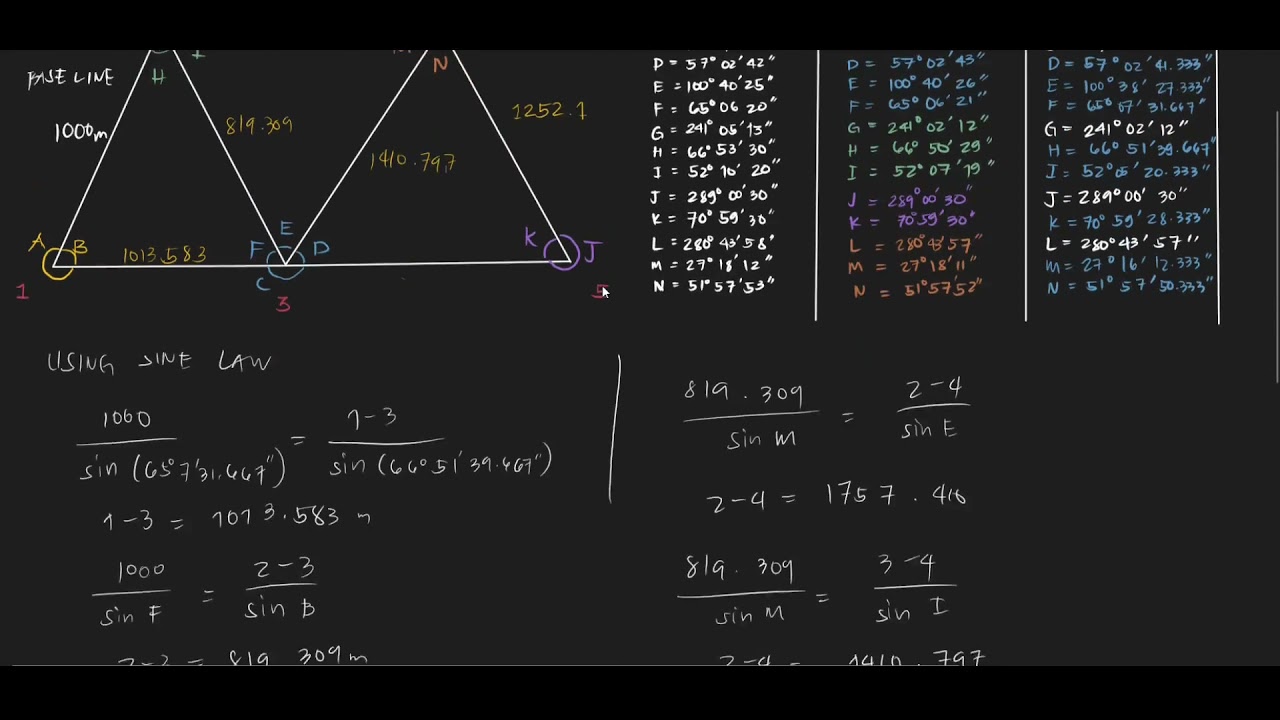 BASE LINE
H
N
1000m
819.309
1410.797
1252.1
A
B
1013.583
F
E
D
C
K
J
1
3
5
D = 57° 02' 42"
E = 100° 40' 25"
F = 65° 06' 20"
G = 241° 05' 15"
H = 66° 53' 30"
I = 52° 10' 20"
J = 289° 00' 30"
K = 70° 59' 30"
L = 280° 43' 58"
M = 27° 18' 12"
N = 51° 57' 53"
D = 57° 02' 43"
E = 100° 40' 26"
F = 65° 06' 21"
G = 241° 02' 12"
H = 66° 50' 29"
I = 52° 07' 19"
J = 289° 00' 30"
K = 70° 59' 30"
L = 280° 43' 57"
M = 27° 18' 11"
N = 51° 57' 52"
D = 57° 02' 41.333"
E = 100° 38' 27.333"
F = 65° 07' 31.667"
G = 241° 02' 12"
H = 66° 51' 39.667"
I = 52° 05' 20.333"
J = 289° 00' 30"
K = 70° 59' 28.333"
L = 280° 43' 57"
M = 27° 16' 12.333"
N = 51° 57' 50.333"
USING SINE LAW
1000 / sin (65° 7' 31.667") = 1-3 / sin (66° 51' 39.667")
1-3 = 1013.583 m
1000 / sin F = 2-3 / sin B
2-3 = 819.309m
819.309 / sin M = 2-4 / sin E
2-4 = 1757.416
819.309 / sin M = 3-4 / sin I
1410.797